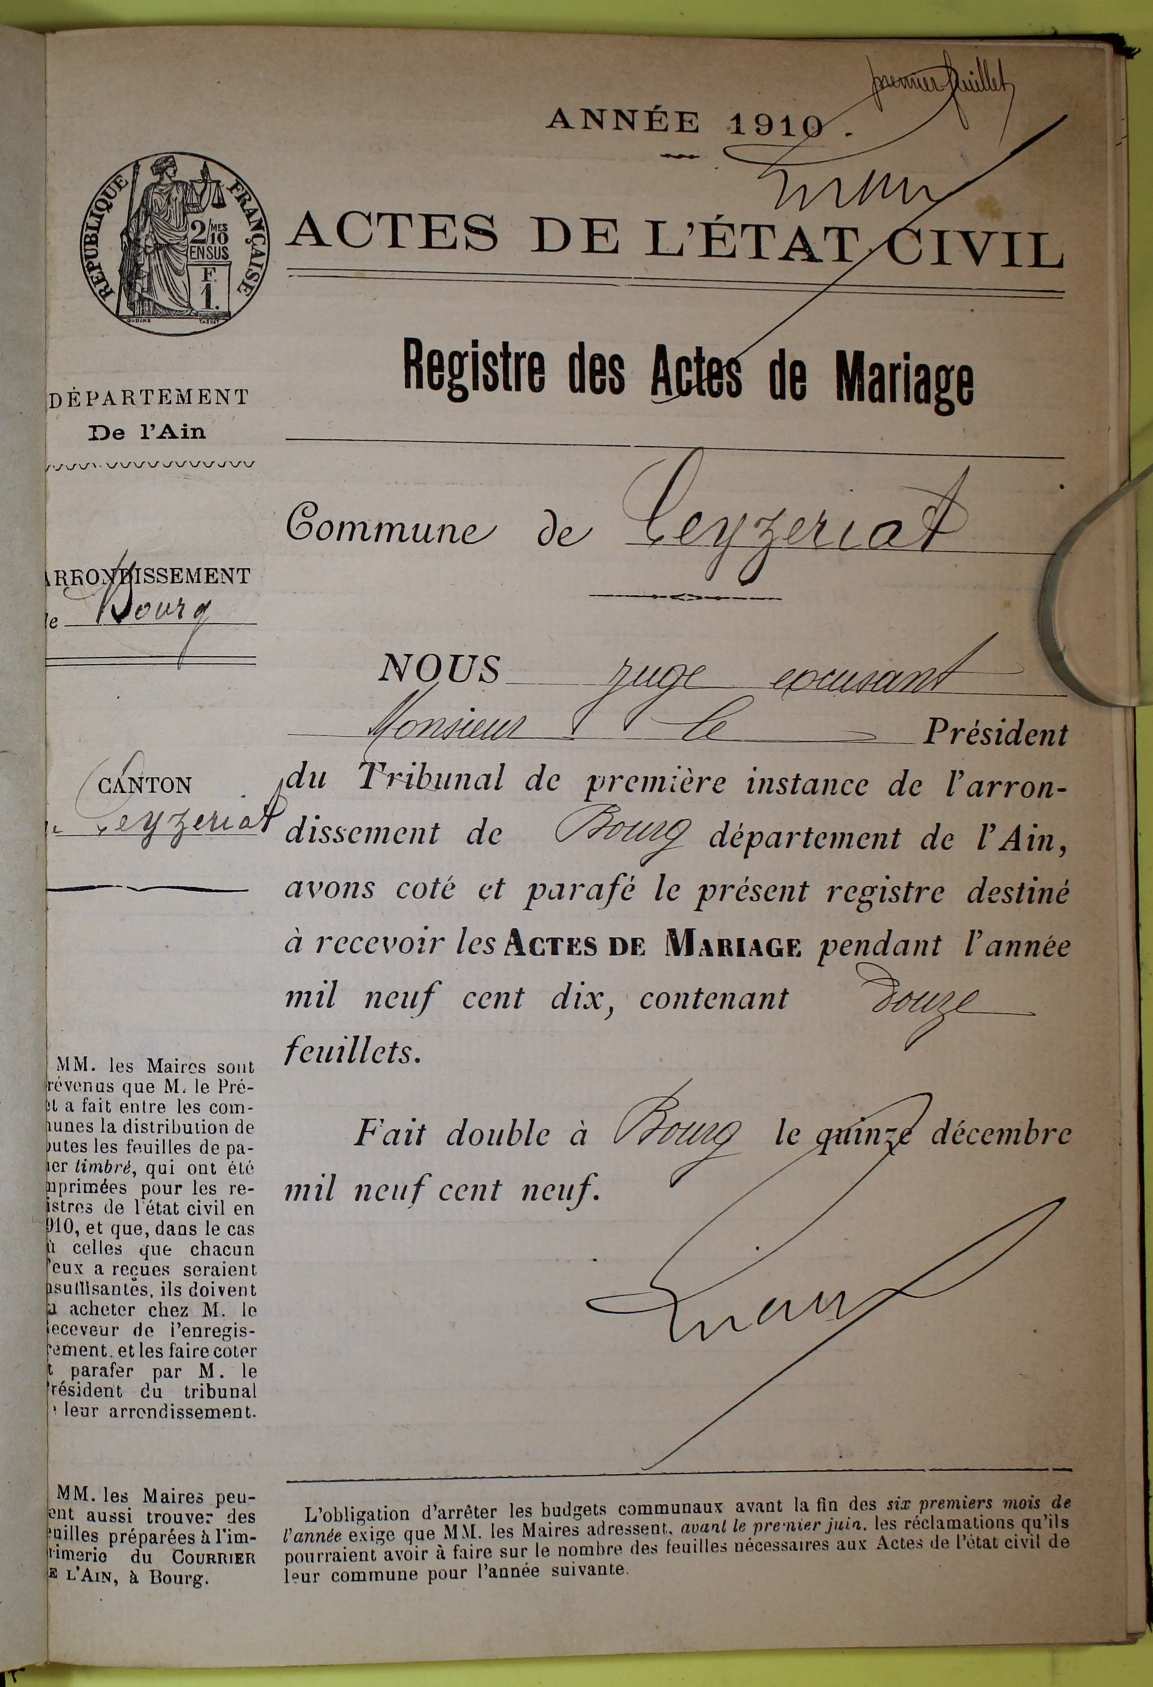 premier feuillet
ANNÉE 1910.
RÉPUBLIQUE FRANÇAISE
2/10 MES
EN SUS
F.
1.
ACTES DE L'ÉTAT CIVIL
Registre des Actes de Mariage
DÉPARTEMENT
De l'Ain
ARRONDISSEMENT
de Bourg
CANTON
de Ceyzeriat
Commune de Ceyzeriat
NOUS juge excusant
Monsieur le Président
du Tribunal de première instance de l'arron-
dissement de Bourg département de l'Ain,
avons coté et parafé le présent registre destiné
à recevoir les ACTES DE MARIAGE pendant l'année
mil neuf cent dix, contenant douze
feuillets.
Fait double à Bourg le quinze décembre
mil neuf cent neuf.
MM. les Maires sont
révenus que M. le Pré-
et a fait entre les com-
munes la distribution de
outes les feuilles de pa-
ier timbré, qui ont été
mprimées pour les re-
istres de l'état civil en
910, et que, dans le cas
ù celles que chacun
'eux a reçues seraient
nsuffisantes, ils doivent
n acheter chez M. le
eceveur de l'enregis-
rement, et les faire coter
t parafer par M. le
résident du tribunal
e leur arrondissement.
MM. les Maires peu-
ent aussi trouver des
euilles préparées à l'im-
rimerie du COURRIER
E L'AIN, à Bourg.
L'obligation d'arrêter les budgets communaux avant la fin des six premiers mois de
l'année exige que MM. les Maires adressent, avant le premier juin, les réclamations qu'ils
pourraient avoir à faire sur le nombre des feuilles nécessaires aux Actes de l'état civil de
leur commune pour l'année suivante.